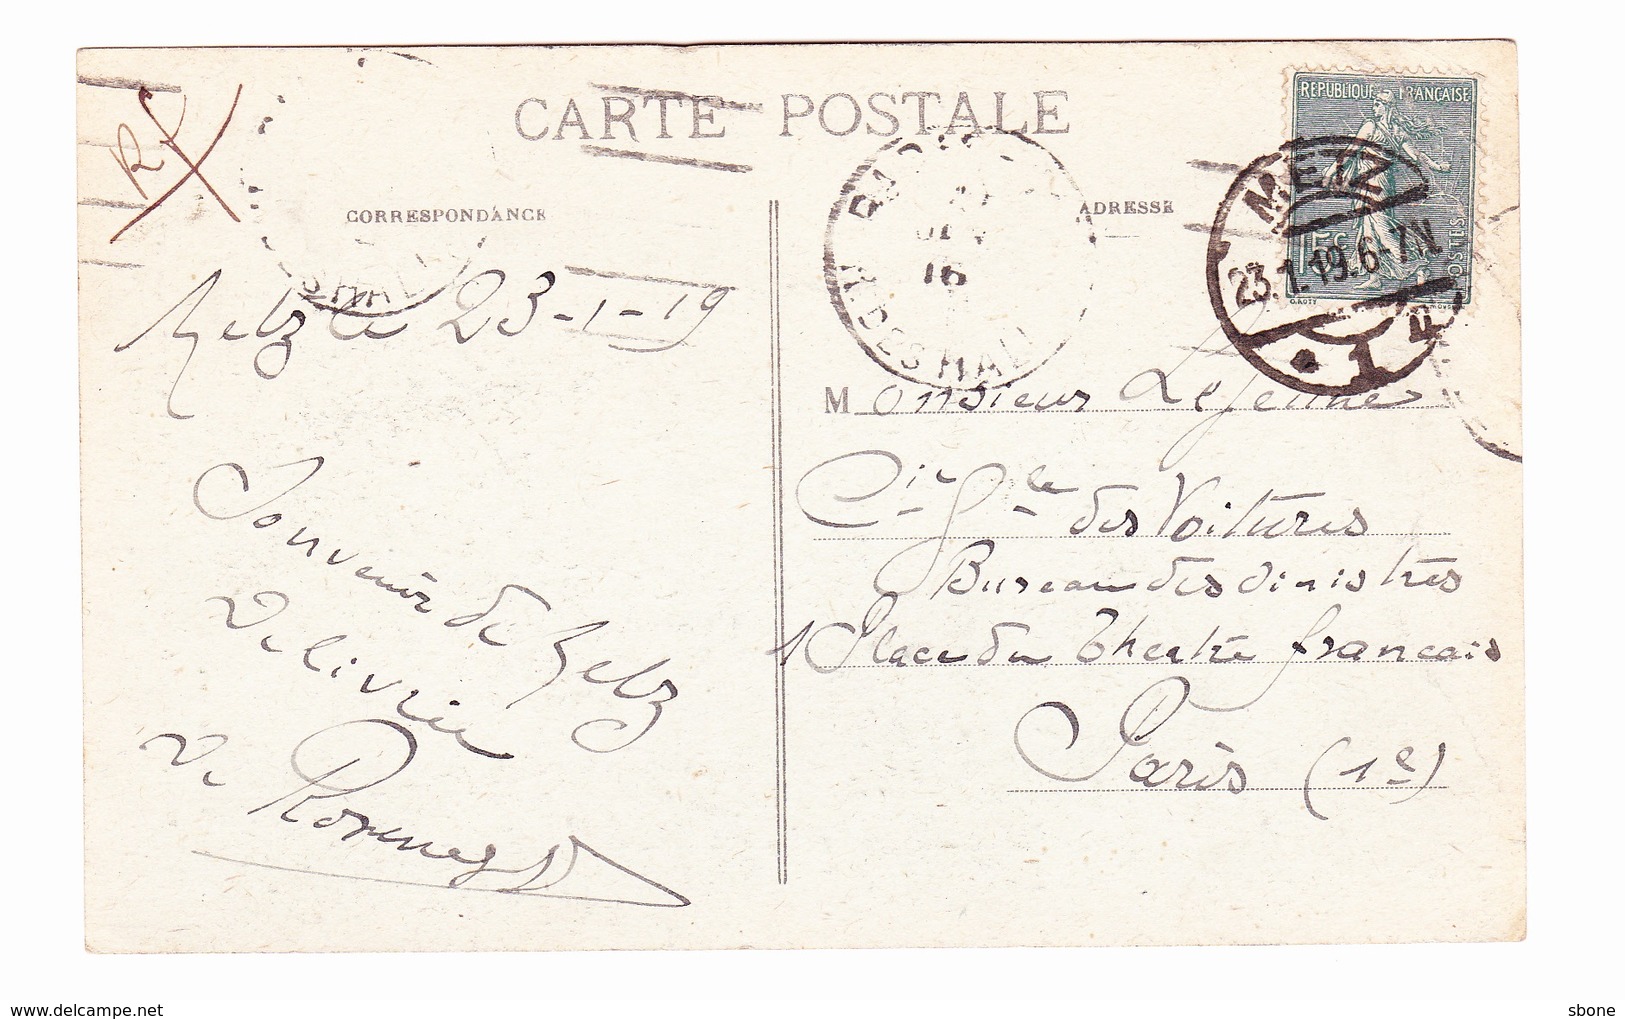 CARTE POSTALE
CORRESPONDANCE
ADRESSE
REPUBLIQUE FRANÇAISE
15c
POSTES
O. ROTY
METZ
23.1.19.6-7N.
* 1
R. DES HALL
16
S HAL
R
Metz le 23-1-19
Souvenir de Metz
Délivrée
De
Monsieur Lejeune
Cie Gle des Voitures
Bureau des Sinistres
1 Place du Theatre francais
Paris (1e)
sbone